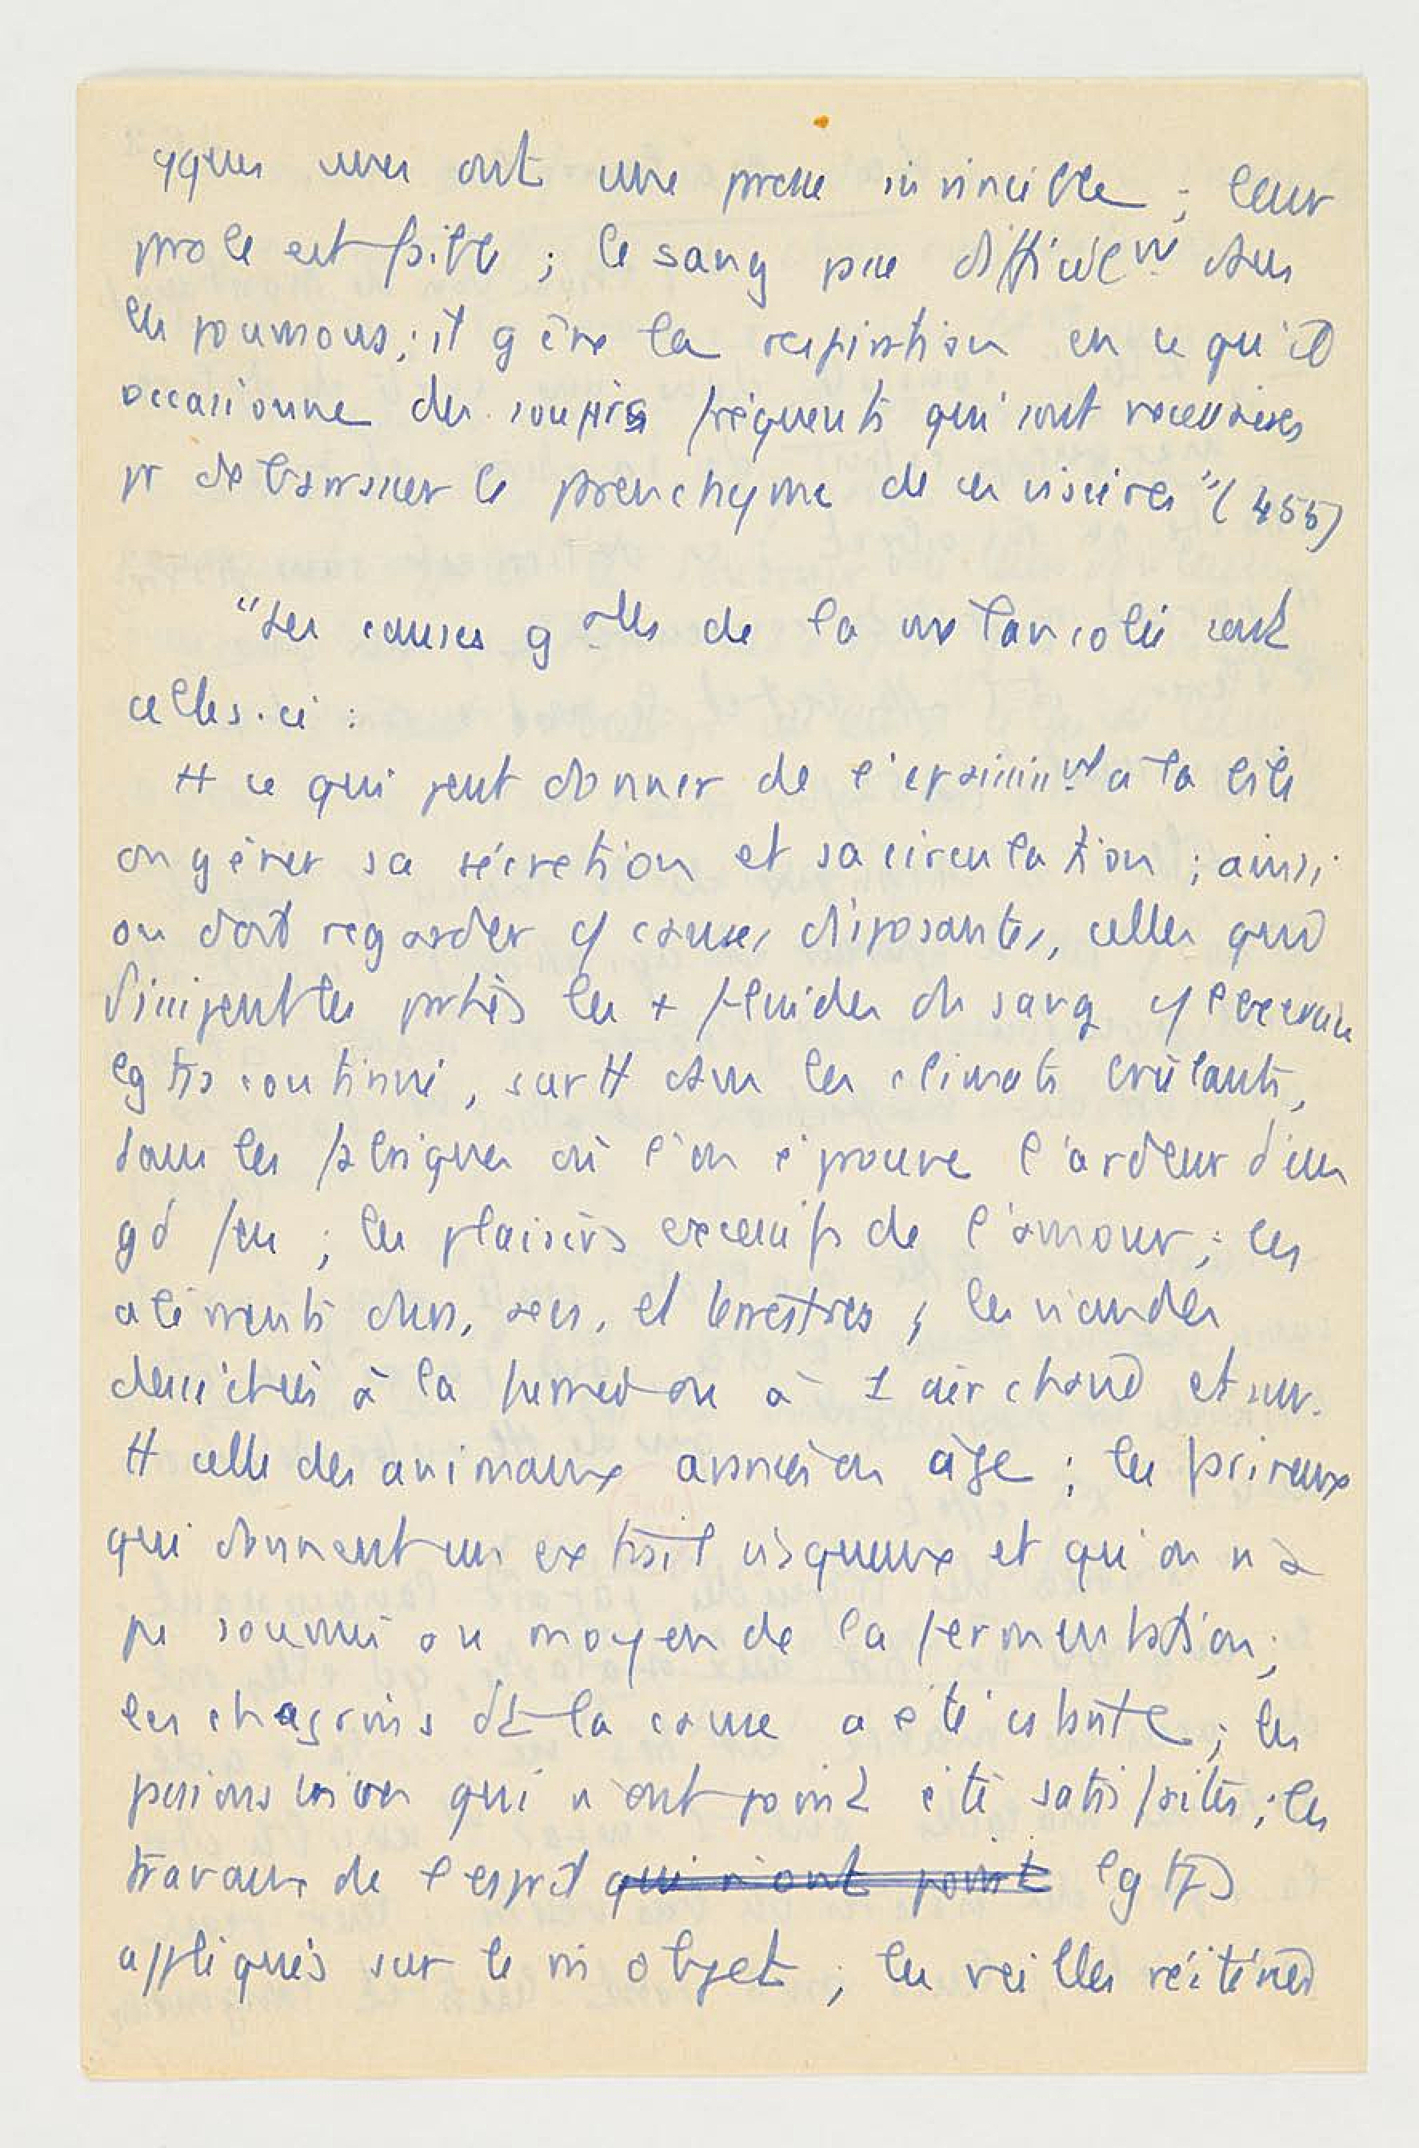 qques unes ont une presse invincible ; leur
parole est faible ; le sang passe difficilemt dans
les poumons ; il gêne la respiration en ce qu'il
occasionne des soupirs fréquents qui sont nécessaires
pr débarrasser le parenchyme de ces viscères" (455)
"Les causes gales de la mélancolie sont
celles-ci :
tt ce qui peut donner de l'épaississt à la bile
ou gêner sa sécrétion et sa circulation ; ainsi
on doit regarder c/ causes disposantes, celles qui
dissipent les parties les + fluides du sang c/ l'exercice
lgtps continué, surtt dans les climats brûlants,
dans les fabriques où l'on éprouve l'ardeur d'un
gd feu ; les plaisirs excessifs de l'amour ; les
aliments durs, secs, et terrestres ; les viandes
desséchées à la fumée ou à 1 air chaud et sur-
tt celle des animaux avancés en âge ; les farineux
qui donnent un extrait visqueux et qu'on n'a
pas soumis au moyen de la fermentation ;
les chagrins dt la cause a été subite ; les
passions vives qui n'ont point été satisfaites ; les
travaux de l'esprit qui n'ont point lgtps
appliqués sur le m objet ; les veilles réitérées